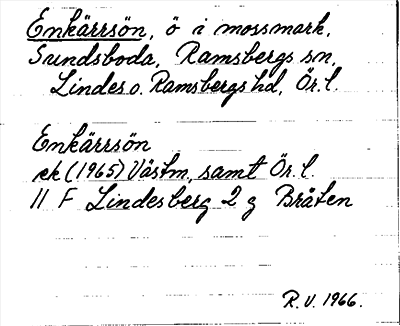 Enkärrsön, ö i mossmark,
Sundsboda, Ramsbergs sn,
Lindes o. Ramsbergs hd, Ör. l.
Enkärrsön
ek (1965) Västm. samt Ör. l.
11 F Lindesberg 2 g Bråten
R. V. 1966.